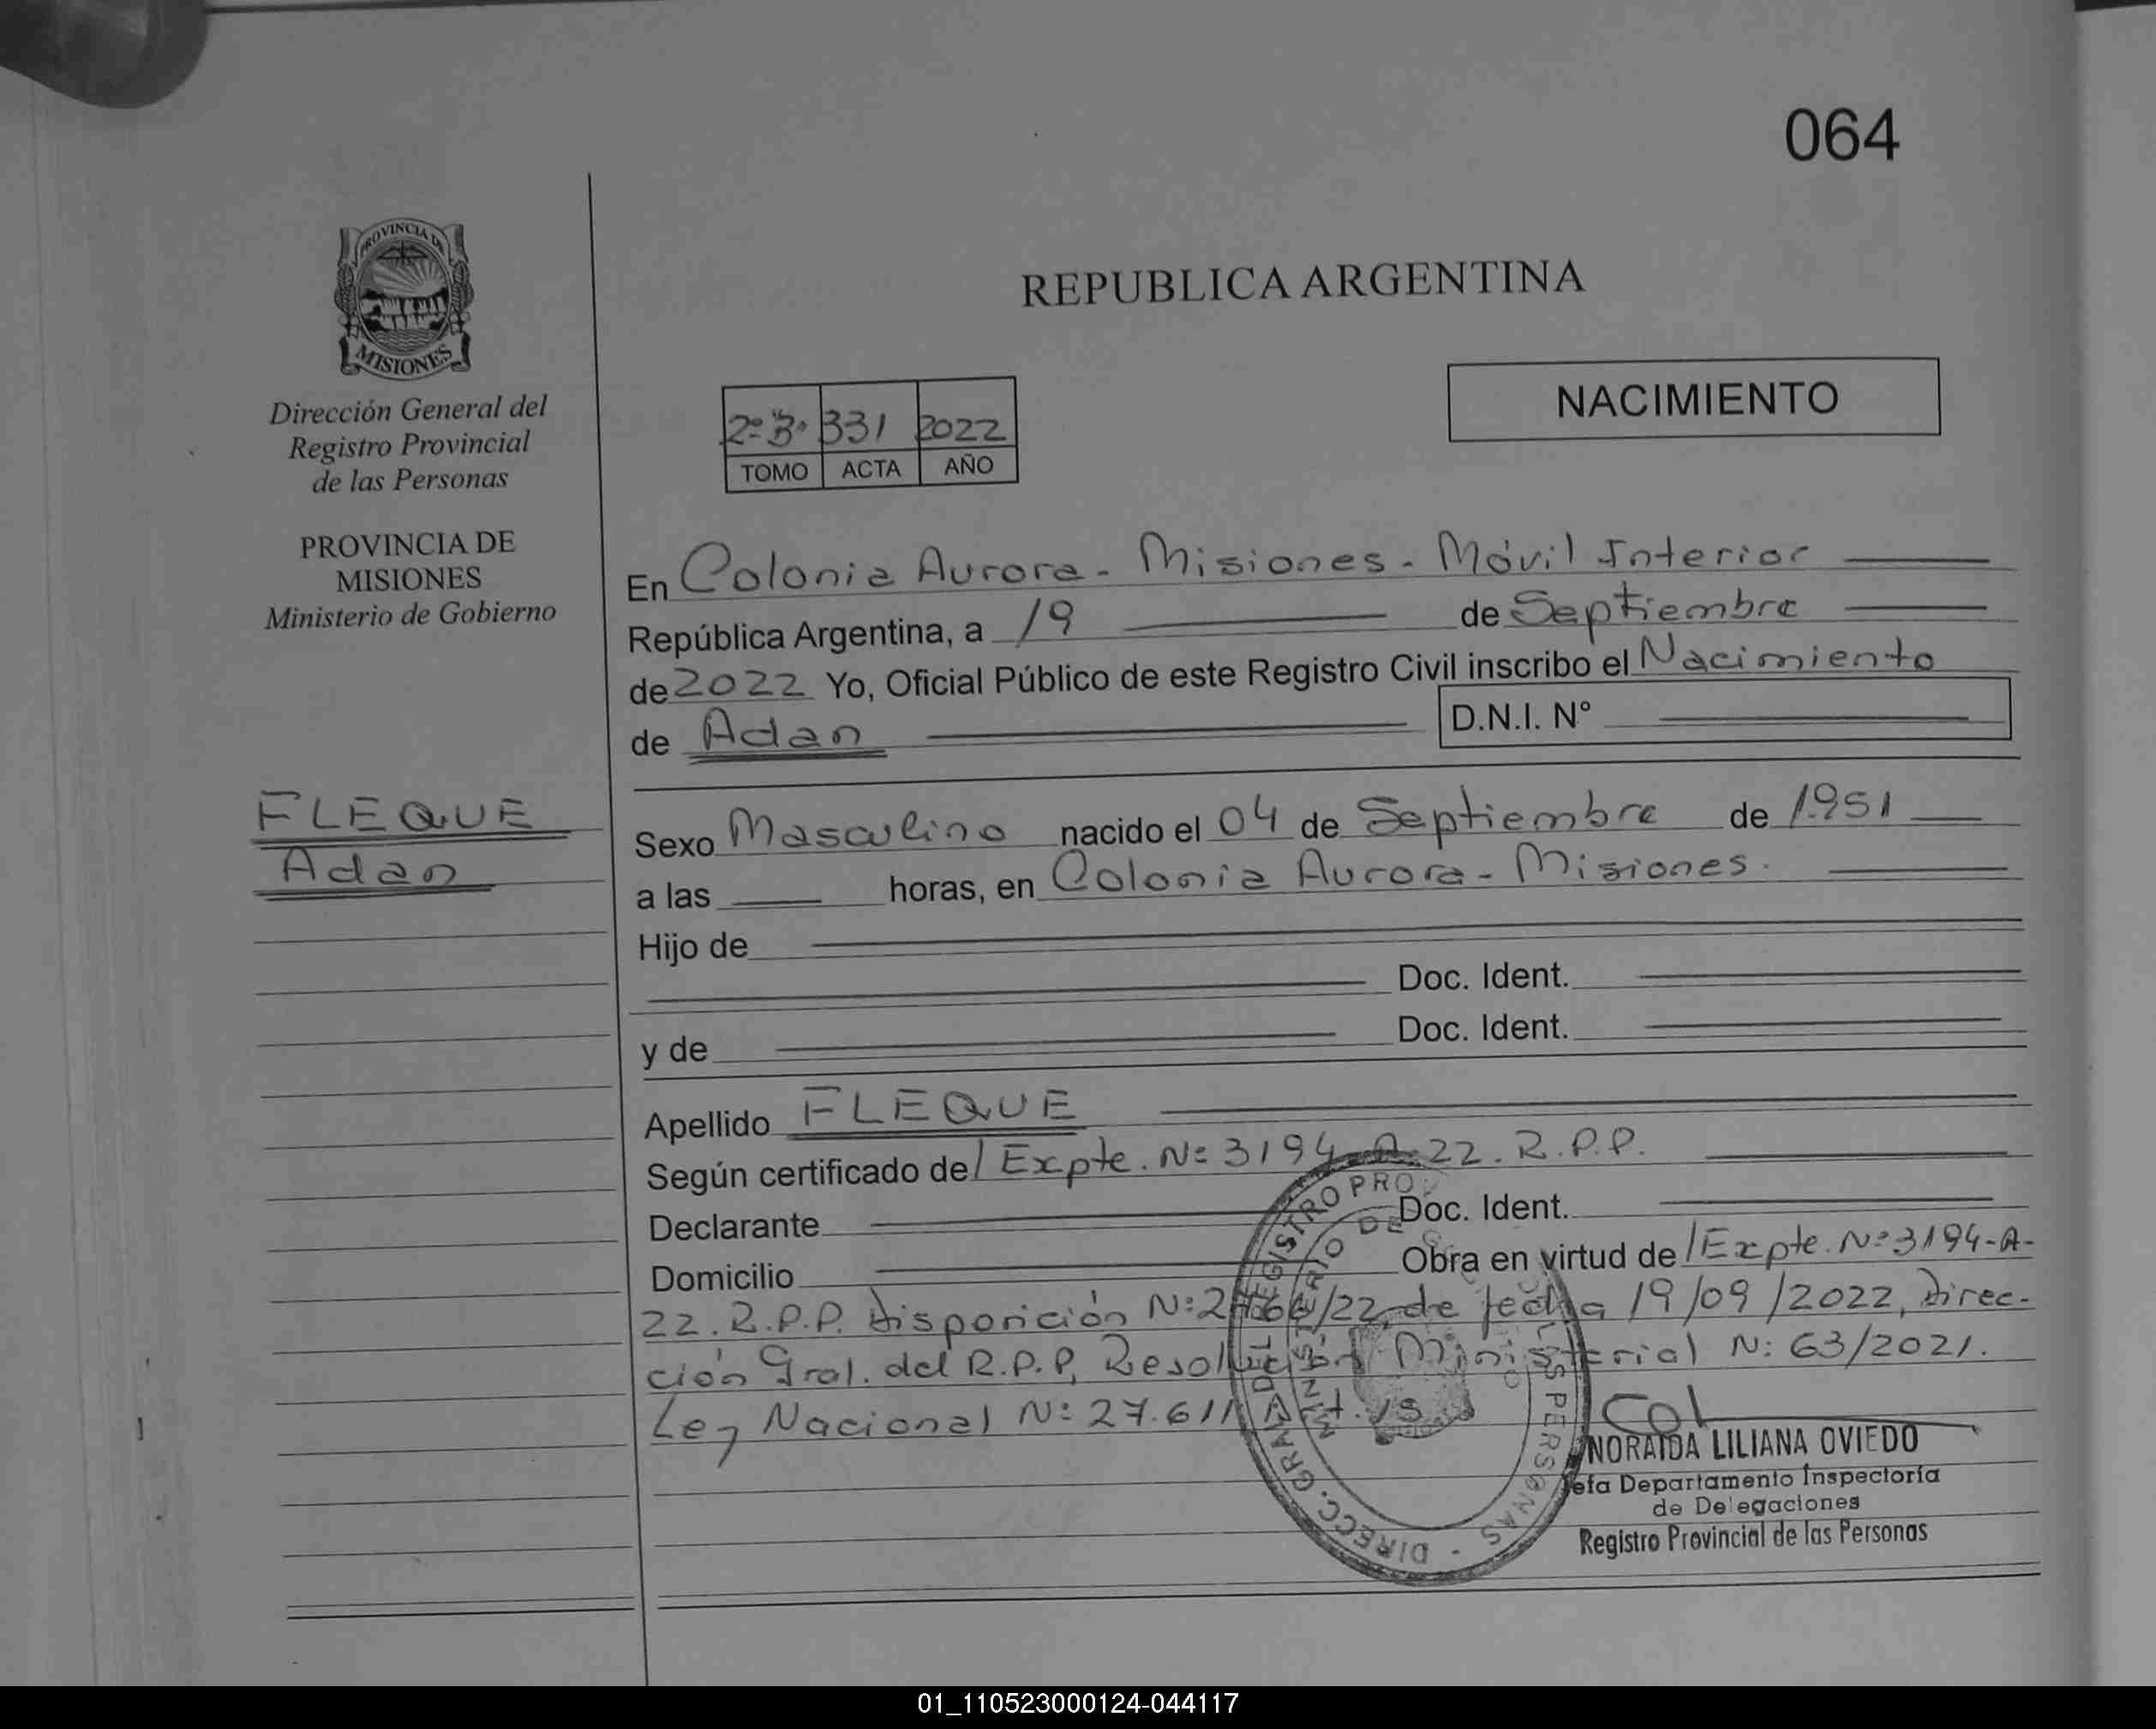 064
PROVINCIA DE
MISIONES
Dirección General del
Registro Provincial
de las Personas
PROVINCIA DE
MISIONES
Ministerio de Gobierno
FLEQUE
Adan
REPUBLICA ARGENTINA
NACIMIENTO
2º B. 331 2022
TOMO ACTA AÑO
En Colonia Aurora - Misiones - Móvil Interior
República Argentina, a 19 de Septiembre
de 2022 Yo, Oficial Público de este Registro Civil inscribo el Nacimiento
de Adan D.N.I. Nº
Sexo Masculino nacido el 04 de Septiembre de 1.951
a las horas, en Colonia Aurora - Misiones.
Hijo de
Doc. Ident.
y de Doc. Ident.
Apellido FLEQUE
Según certificado de/ Expte. Nº 3194-A-22. R.P.P.
Declarante Doc. Ident.
Domicilio Obra en virtud de /Expte. Nº 3194-A-
22. R.P.P. Disposición Nº /22, de fecha 19/09/2022, Direc-
ción Gral. del R.P.P, Resolución Ministerial Nº 63/2021.
Ley Nacional Nº 27.611 Art.
DIRECC. GRAL DEL REGISTRO PERSONAS
NORAIDA LILIANA OVIEDO
Jefa Departamento Inspectoría
de Delegaciones
Registro Provincial de las Personas
01_110523000124-044117